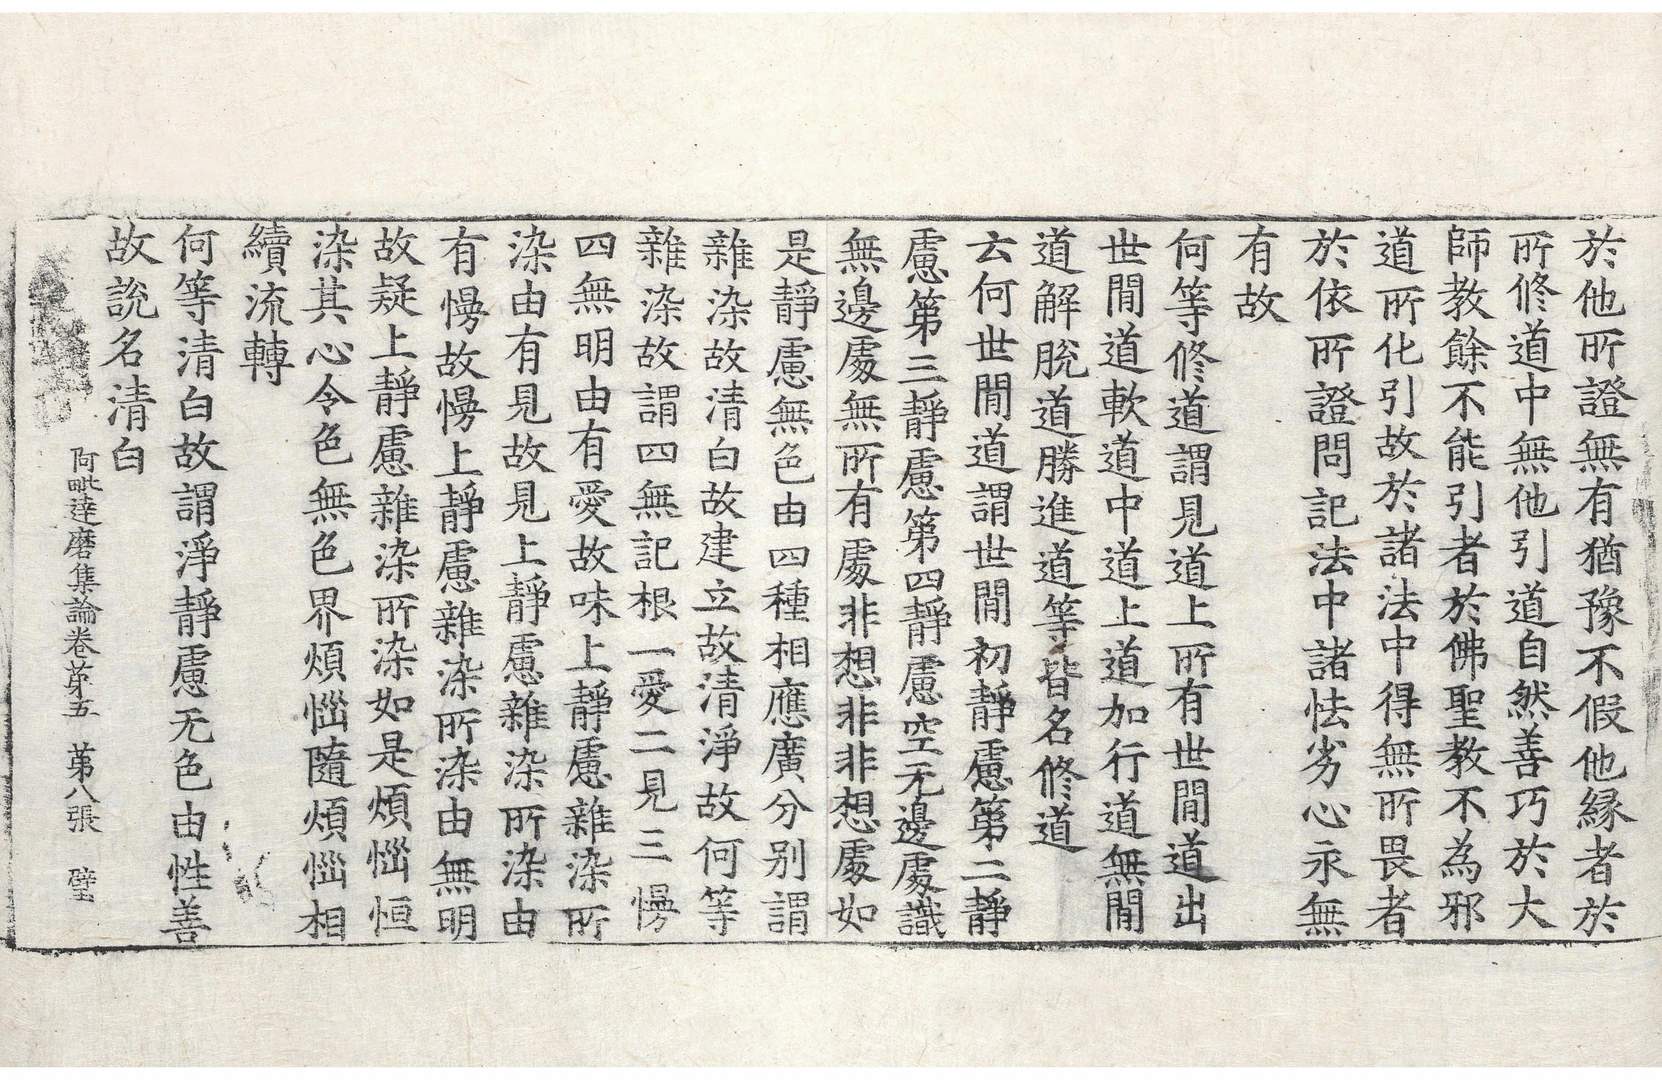 於他所證無有猶豫不假他縁者於
所修道中無他引道自然善巧於大
師教餘不能引者於佛聖教不為邪
道所化引故於諸法中得無所畏者
於依所證問記法中諸怯劣心永無
有故
何等修道謂見道上所有世閒道出
世閒道軟道中道上道加行道無閒
道解脫道勝進道等皆名修道
云何世閒道謂世閒初靜慮第二靜
慮第三靜慮第四靜慮空无邊處識
無邊處無所有處非想非非想處如
是靜慮無色由四種相應廣分別謂
雜染故清白故建立故清淨故何等
雜染故謂四無記根一愛二見三慢
四無明由有愛故味上靜慮雜染所
染由有見故見上靜慮雜染所染由
有慢故慢上靜慮雜染所染由無明
故疑上靜慮雜染所染如是煩惱恒
染其心令色無色界煩惱隨煩惱相
續流轉
何等清白故謂淨靜慮无色由性善
故說名清白
阿毗達磨集論卷苐五　苐八張　璧